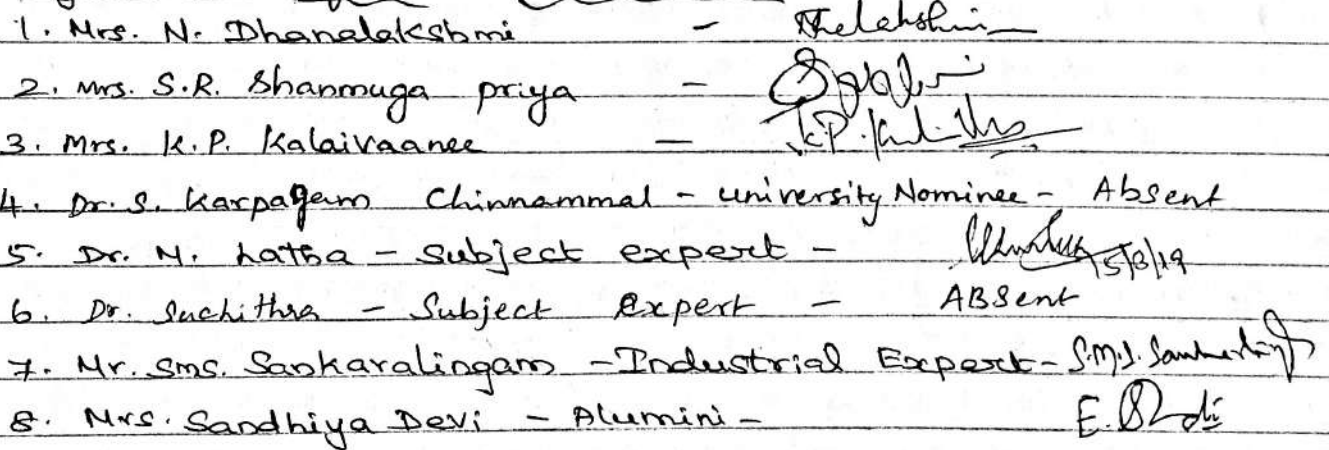 1. Mrs. N. Dhanalakshmi -
2. Mrs. S.R. Shanmuga priya -
3. Mrs. K.P. Kalaivaanee - K.P.
4. Dr. S. Karpagam Chinnammal - University Nominee - Absent
5. Dr. M. Latha - Subject expert - 5/8/19
6. Dr. Suchithra - Subject Expert - ABSent
7. Mr. sms. Sankaralingam - Industrial Expert - S.M.S.
8. Mrs. Sandhiya Devi - Alumini - E.